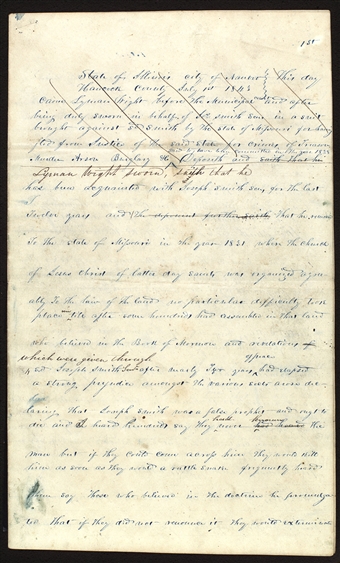 1st
State of Illinois city of Nauvoo This day
Hancock County July 1st 1843
Came Lyman Wight before the Municipal and after
being duly sworn in behalf of Js smith Sen in a suit
brought against Js Smith by the state of Missouri for having
fled from Justice of the said State for crimes of Treason
Murder Arson Burglary &c committed in the year 1838
Deposeth and saith that he
Lyman Wight Sworn, saith that he
has been acquainted with Joseph smith sen for the last
Twelve years and the deponent further saith That he removed
To the state of Missouri in the year 1831 when the church
of Jesus Christ of latter day saints was organized agree
ably To the laws of the land no particular difficulty took
place untill after some hundreds had assembled in that land
who believed in the Book of Mormon and revelations
which were given through
sd Joseph Smith Sen after nearly Two years had elapsed
a strong prejudice amongst the various sects arose dec
laring that Joseph Smith was a false prophet and ought to
die and I heard hundreds say they had known the
man but if they could come across him they would kill
him as soon as they would a rattle snake frequently heard
them say Those who believed in the doctrine he promulga
ted That if they did not renounce it they would exterminate